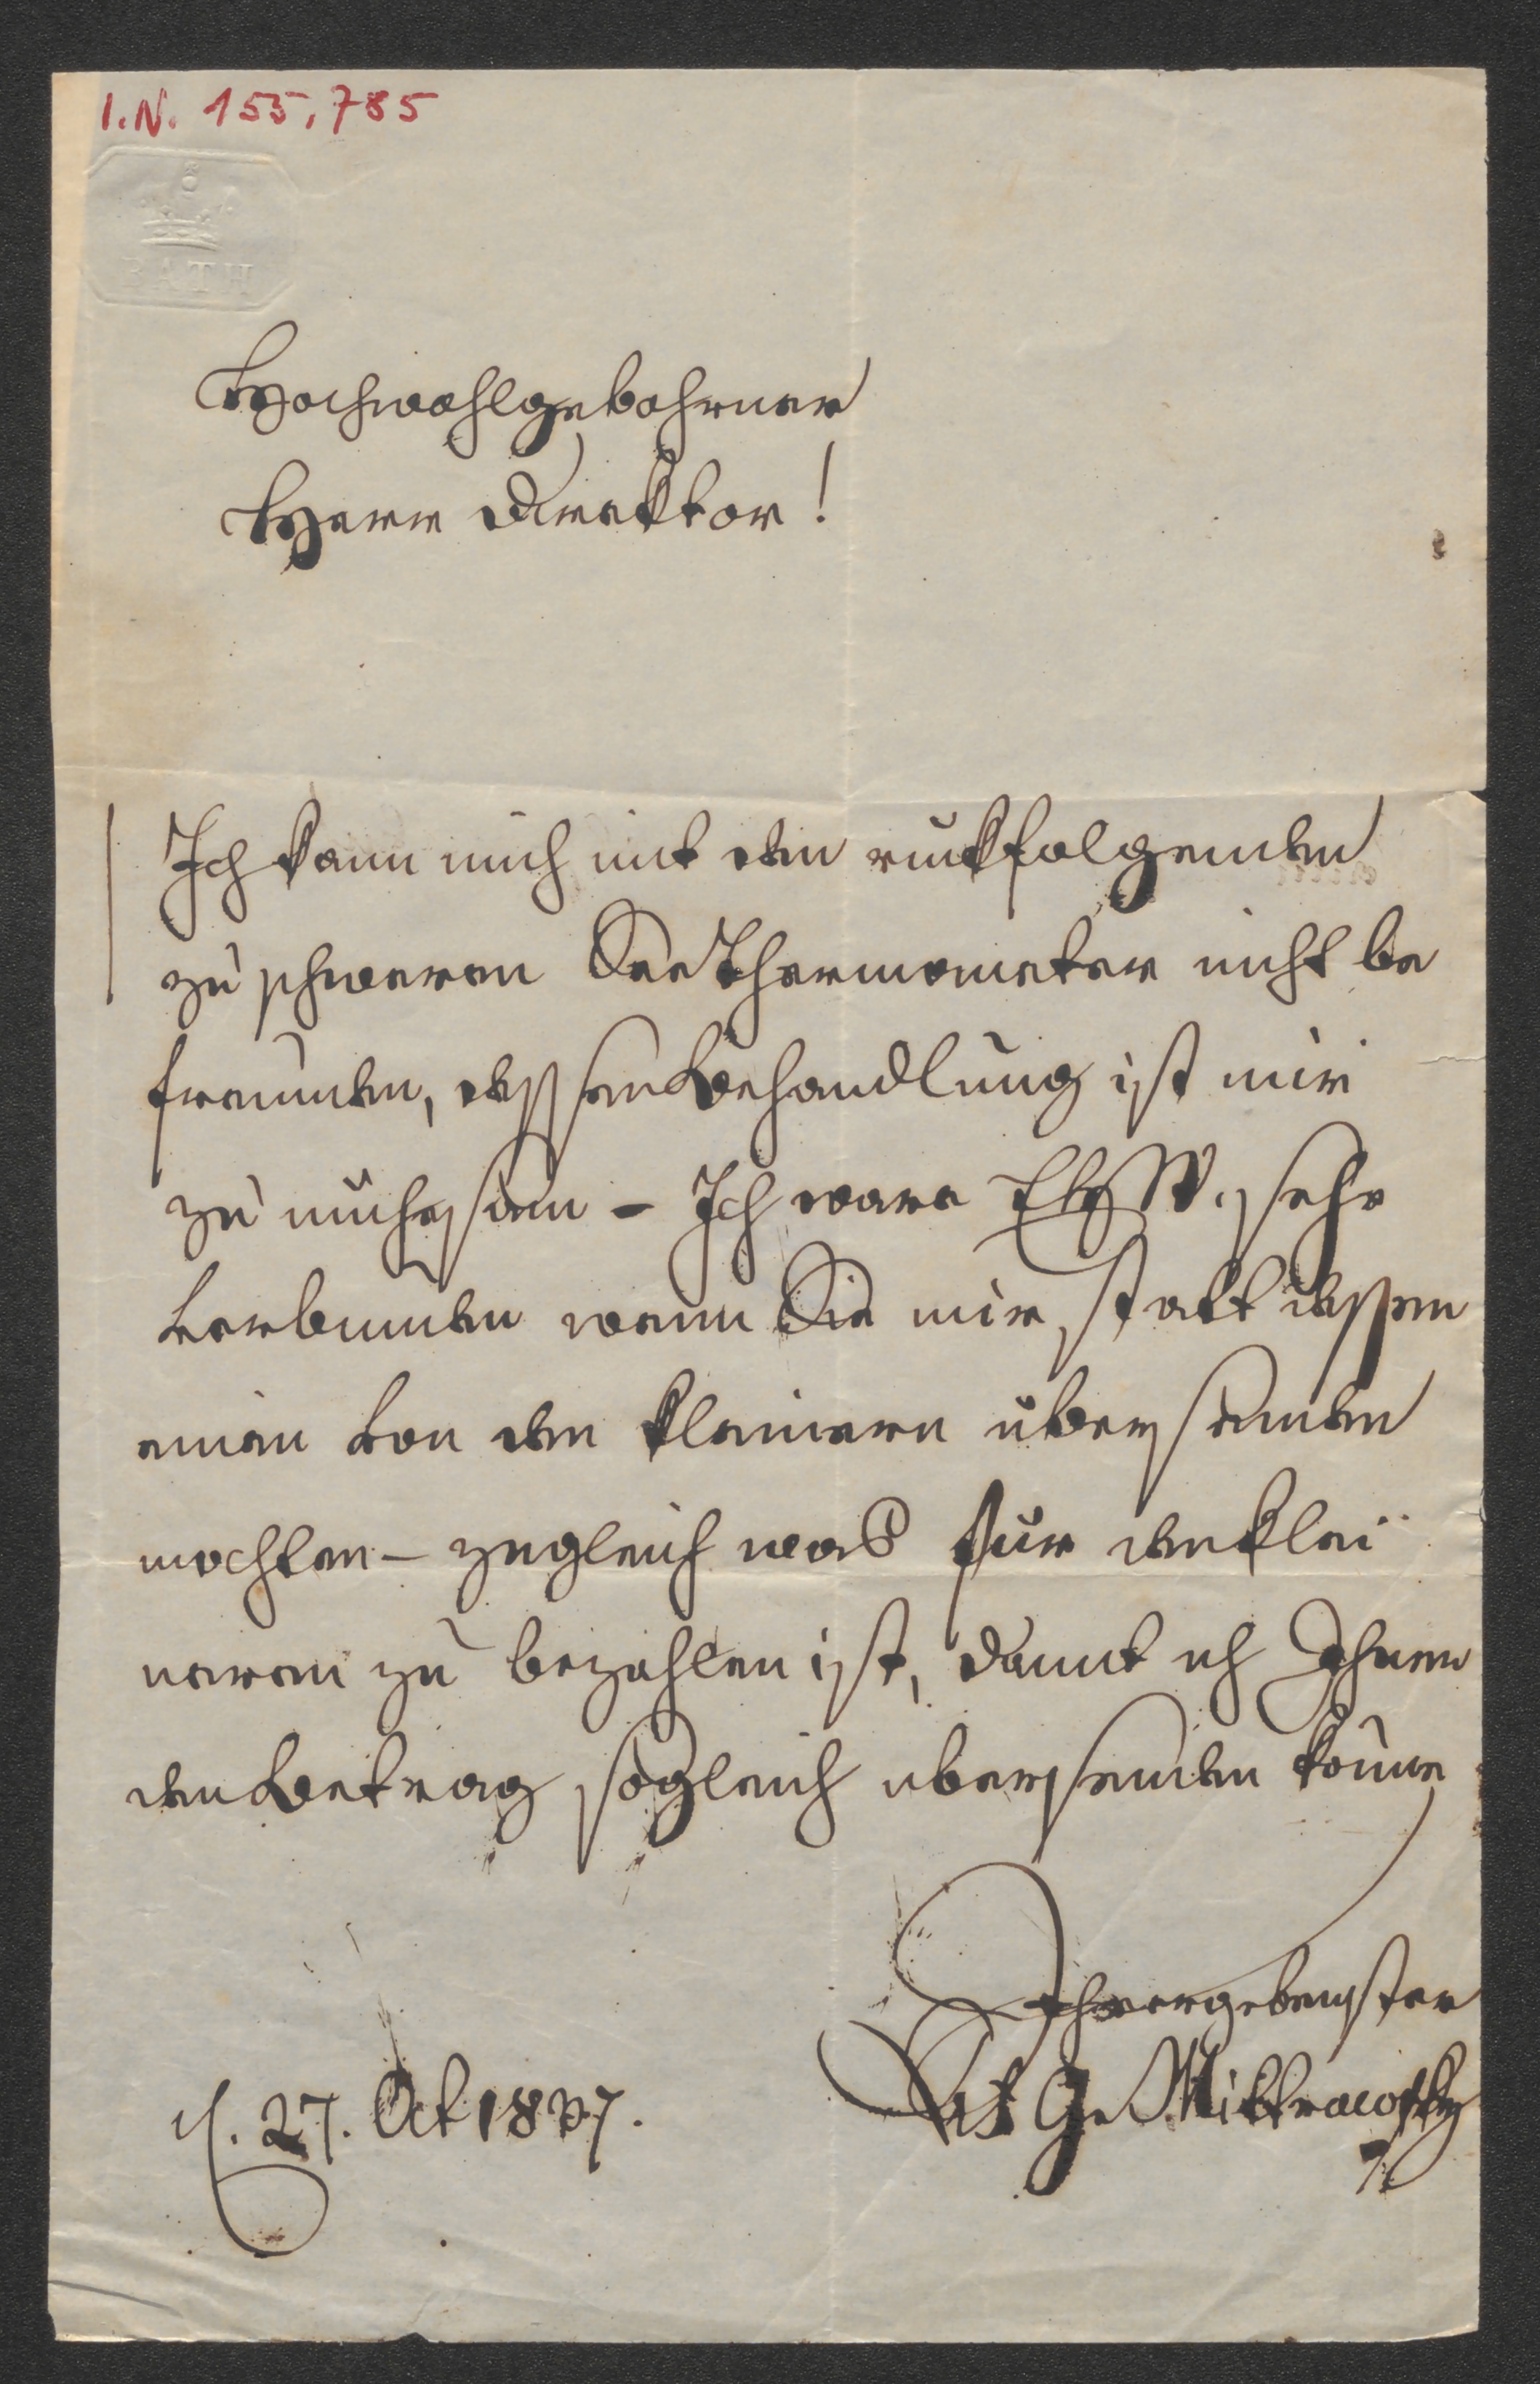 I.N. 155,785
BATH
Hochwohlgebohrner
Herr Direcktor!
Ich kann mich mit dem rückfolgenden
zu schweren See Thermometer nicht be
freunden, dessen Behandlung ist mir
zu mühesam – Ich ware sehr
verbunden wenn Sie mir statt dessen
einen von den kleinern übersenden
mochten – zugleich was für den klei
neren zu bezahlen ist, damit ich Ihnen
den Betrag sogleich übersenden könne
Ihr ergebenster
Mittrowsky
27. Oct 1837.